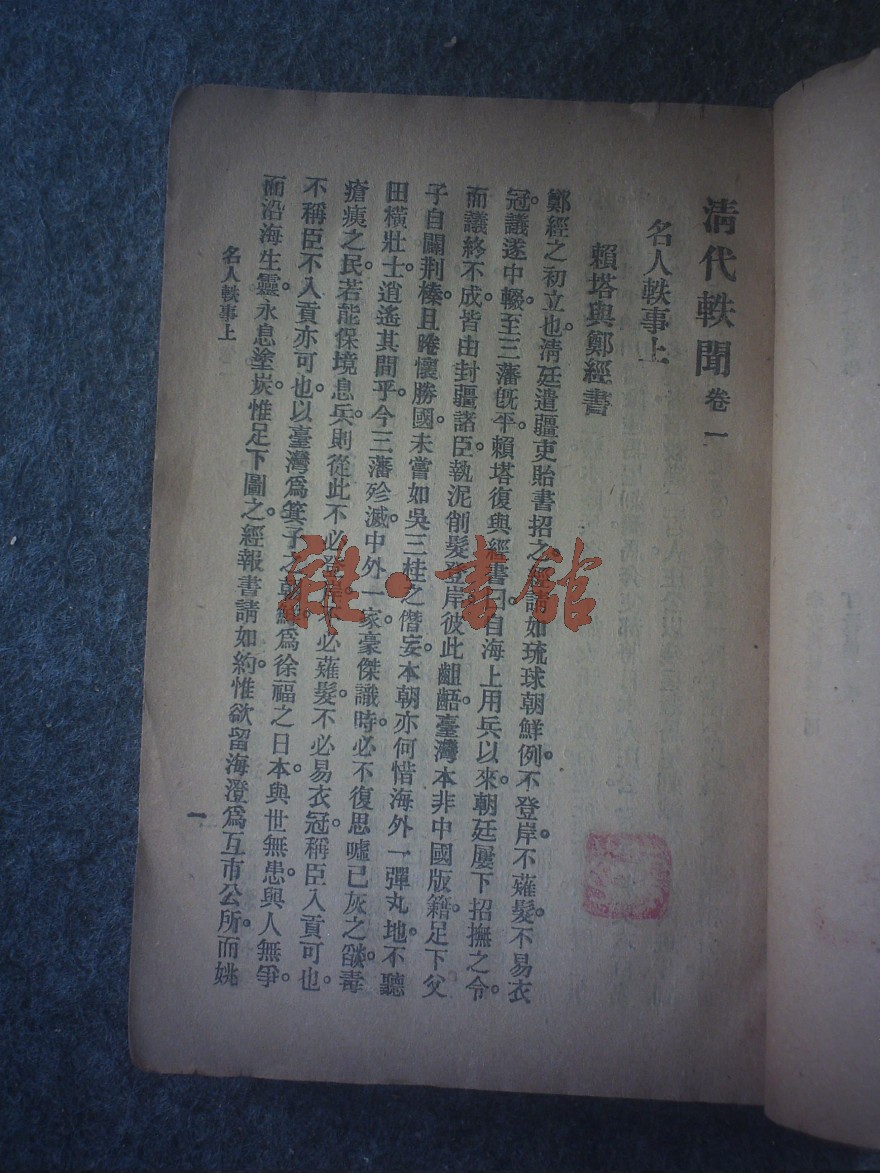 清代軼聞 卷一
名人軼事上
賴塔與鄭經書
鄭經之初立也。清廷遣疆吏貽書招之。經請如琉球朝鮮例。不登岸。不薙髮。不易衣
冠。議遂中輟。至三藩旣平。賴塔復與經書曰。自海上用兵以來。朝廷屢下招撫之令。
而議終不成。皆由封疆諸臣執泥削髮登岸。彼此齟齬。臺灣本非中國版籍。足下父
子自闢荆榛。且睠懷勝國。未嘗如吳三桂之僭妄。本朝亦何惜海外一彈丸地。不聽
田橫壯士逍遙其間乎。今三藩殄滅。中外一家。豪傑識時。必不復思噓已灰之燄。毒
瘡痍之民。若能保境息兵。則從此不必登岸。不必薙髮。不必易衣冠。稱臣入貢可也。
不稱臣不入貢亦可也。以臺灣爲箕子之朝鮮。爲徐福之日本。與世無患。與人無爭。
而沿海生靈。永息塗炭。惟足下圖之。經報書請如約。惟欲留海澄爲互市公所。而姚
名人軼事上
一
雜·書館